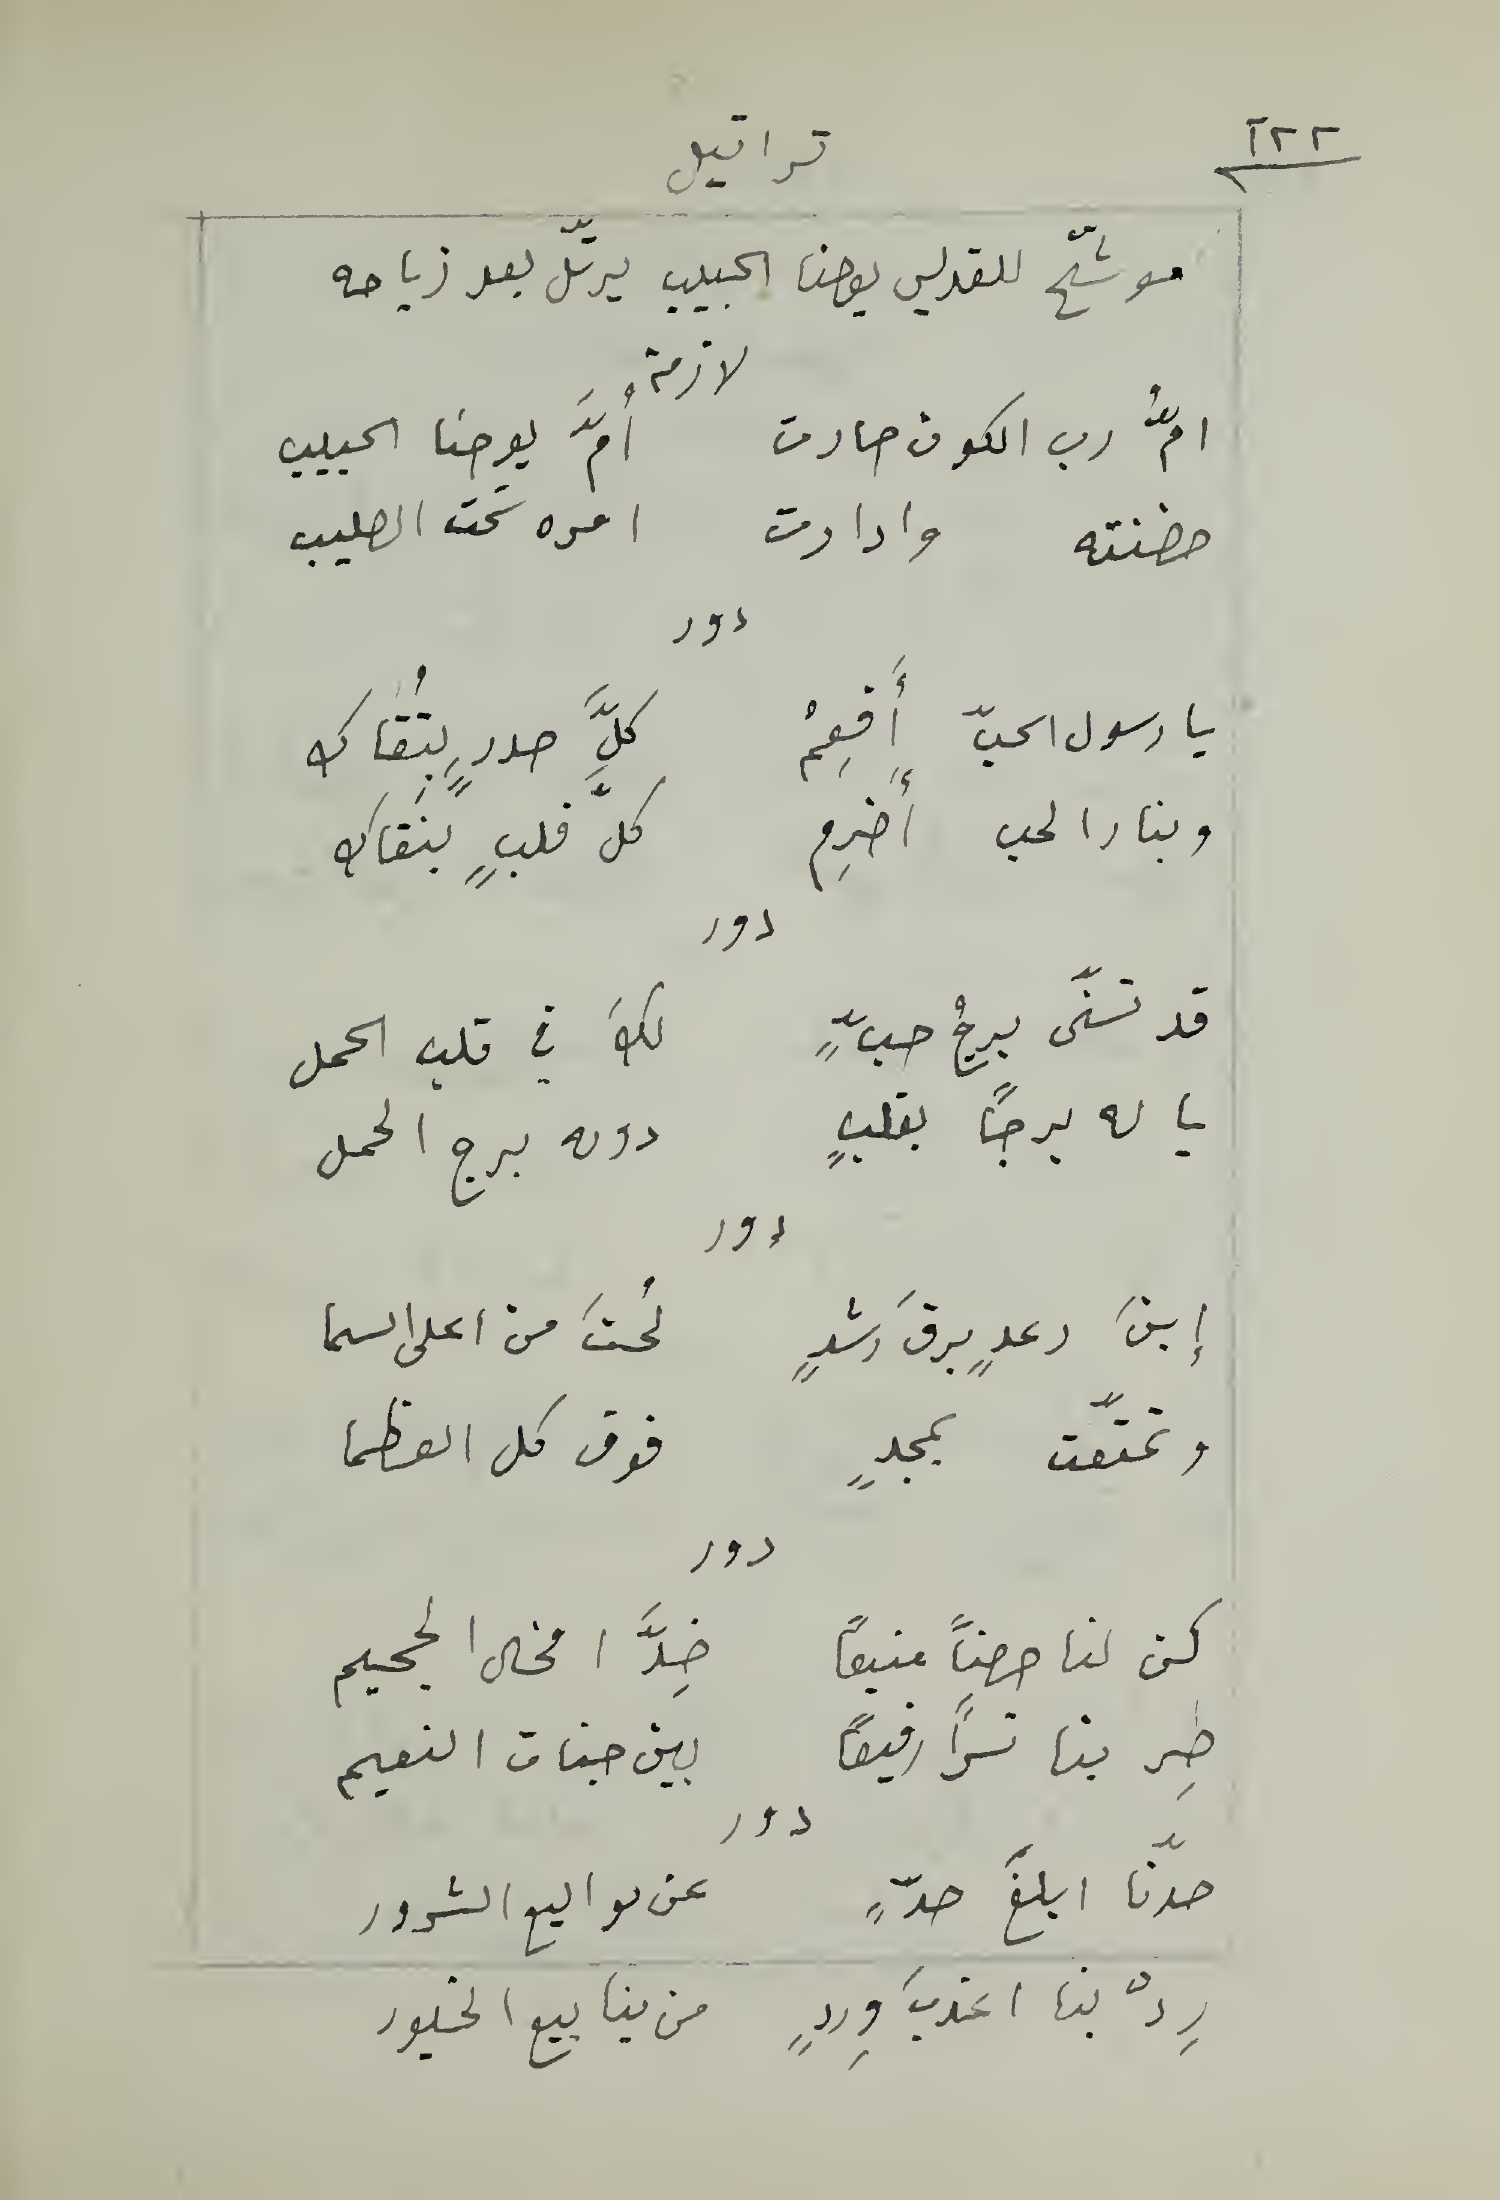 ٢٢٦
تراتيل
موشّح للقديس يوحنا الحبيب يرتّل بعد زياحه
لازمة
امُّ رب الكون صارت أُمَّ يوحنا الحبيب
حضنته وادارت امره تحت الصليب
دور
يا رسول الحبّ أَفعِمْ كلَّ صدرٍ بتُقاك
وبنار الحب أَضرِم كلَّ قلبٍ بنَقاك
دور
قد تسنّى برجُ حبٍّ لكَ في قلب الحمل
يا له برجًا بقلبٍ دونه برج الحمل
دور
إبنَ رعدٍ برقَ رشدٍ لُحتَ من اعلى السما
وتمتّعت بمجدٍ فوق كل العظما
دور
كن لنا حصناً منيعًا ضِدَّ الجحيم
طِر بنا نسرًا رفيعًا بين جنات النعيم
دور
حدّنا ابلغَ حدٍّ عن الشرور
رِدْ بنا اعذبَ وِردٍ من ينابيع الخيور